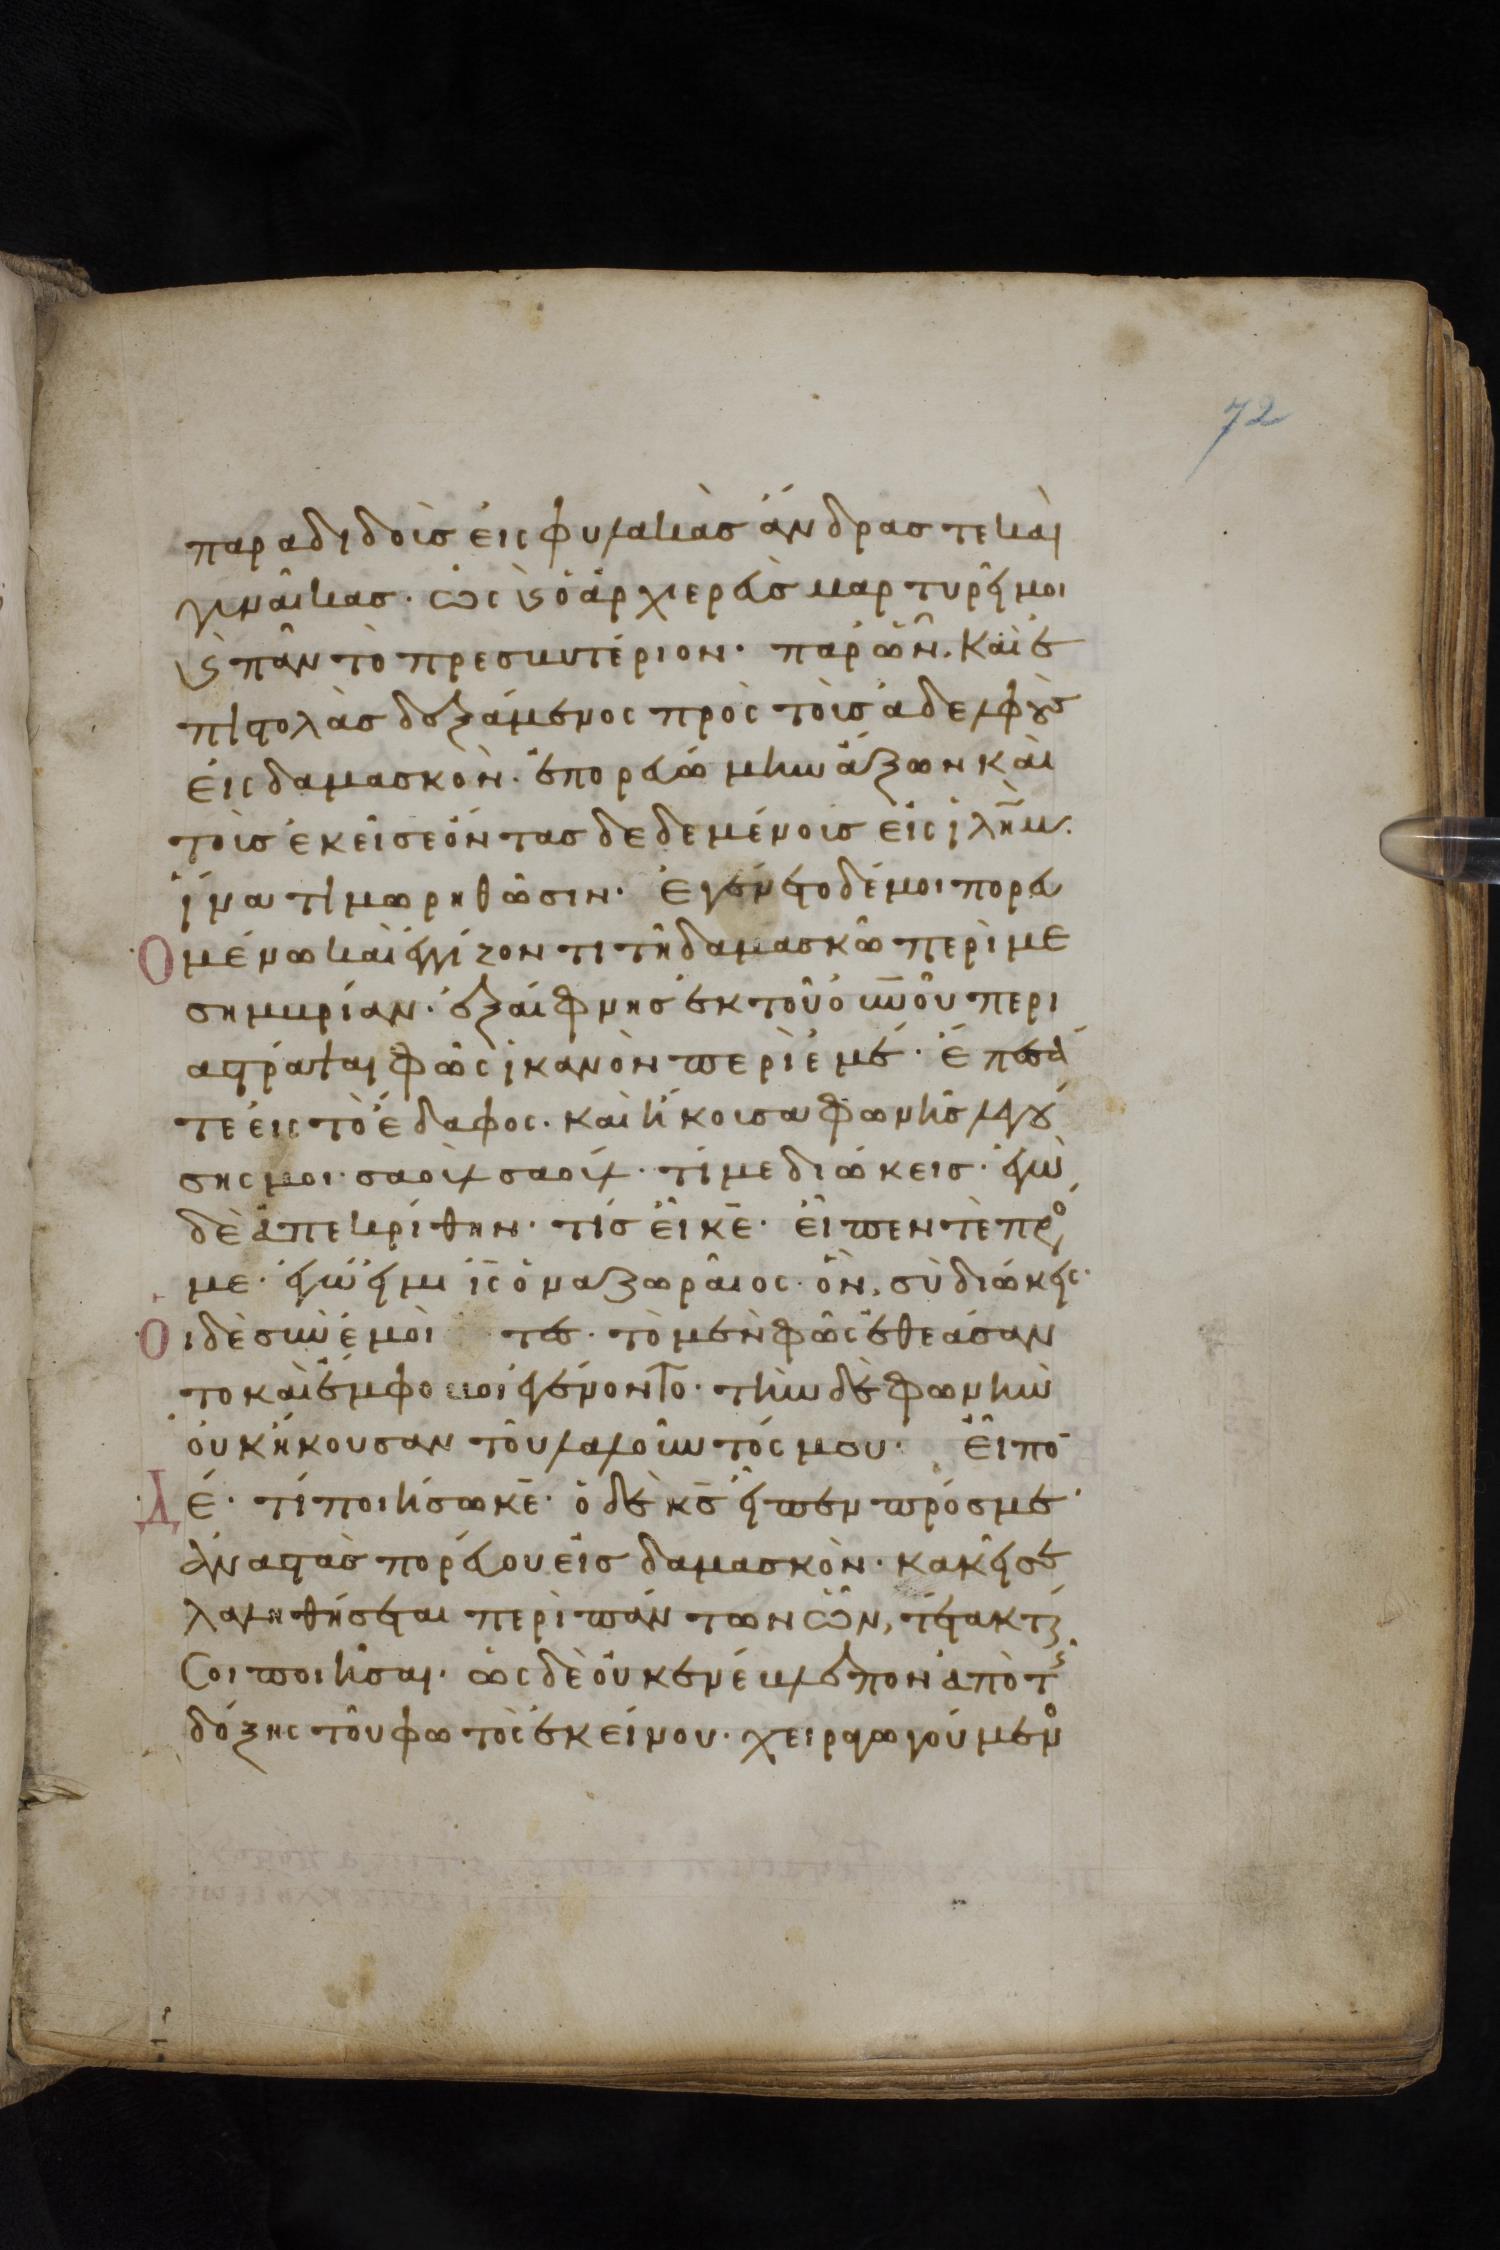 72
παραδιδοὺς εἰς φυλακὰς ἄνδρας τε καὶ
γυναῖκας· ὡς ϗ ὁ ἀρχιερεὺς μαρτυρεῖ μοι
ϗ πᾶν τὸ πρεσβυτέριον· παρ ὧν, καὶ ἐ
πιστολὰς δεξάμενος πρὸς τοὺς ἀδελφοὺς
εἰς δαμασκὸν· ἐπορευόμην ἄξων καὶ
τοὺς ἐκεῖσε ὄντας δεδεμένους εἰς ἰλῆμ·
ἵνα τιμωρηθῶσιν· Ἐγένετο δέ μοι πορευ
Ομένω καὶ ἐγγίζοντι τῆ δαμασκῶ περὶ με
σημβρίαν· ἐξαίφνης ἐκ τοῦ οὐνοῦ περι
αστράψαι φῶς ἱκανὸν περὶ ἐμέ· ἔπεσά
τε εἰς τὸ ἔδαφος· καὶ ἤκουσα φωνῆς λεγού
σης μοι· σαοὺλ σαούλ· τί με διώκεις· ἐγὼ
δὲ ἀπεκρίθην· τίς εἶ κε· εἶπεν τὲ πρός
με· ἐγώ εἰμι ις ὁ ναζωραῖος· ὃν, σὺ διώκεις·
Οἱ δὲ σὺν ἐμοὶ τες· τὸ μὲν φῶς ἐθεάσαν
το καὶ ἔμφοβοι ἐγένοντο· τὴν δὲ φωνὴν
οὐκ ἤκουσαν τοῦ λαλοῦντός μου· Εἶπο̄
Δέ· τί ποιήσω κε· ὁ δὲ κς εἶπεν πρός με·
ἀναστὰς πορεύου εἰς δαμασκὸν· κακεῖ σε
λαληθήσεται περὶ πάντων ὧν, τέτακτ
σοι ποιῆσαι· ὡς δὲ οὐκ ἐνέβλεπον ἀπὸ τ
δόξης τοῦ φωτὸς ἐκείνου· χειραγωγούμενο